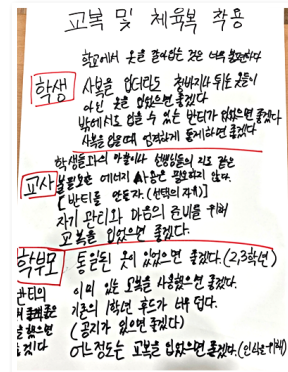 교복 및 체육복 착용
학교에서 옷을 갈아입는 것은 너무 불편하다
학생
사복을 입더라도 청바지나 튀는 옷들이
아닌 옷을 입었으면 좋겠다
밖에서도 입을 수 있는 반티가 있었으면 좋겠다
사복을 입을때 엄격하게 통제하면 좋겠다
학생들과의 마찰이나 선생님들의 지도 같은
교사
불필요한 에너지 사용은 필요하지 않다.
[반티를 만들자. (선택의 자유)]
자기 관리와 마음의 준비를 위해
교복을 입었으면 좋겠다.
학부모
통일된 옷이 있었으면 좋겠다. (2,3학년)
반티의
이미 있는 교복을 사용했으면 좋겠다.
기존의 1학년 후드가 너무 덥다.
했으면
(공지가 있으면 좋겠다)
어느정도는 교복을 입었으면 좋겠다.